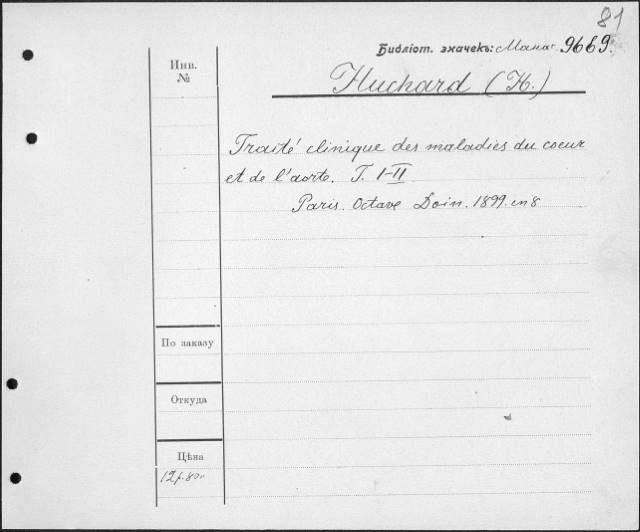 81
Библіот. значекъ: Мана. 9669
Инв.
№
Huchard (H.)
Traité clinique des maladies du coeur
et de l'aorte. T. I-II
Paris. Octave Doin. 1899. in 8
По заказу
Откуда
Цѣна
12р.80к